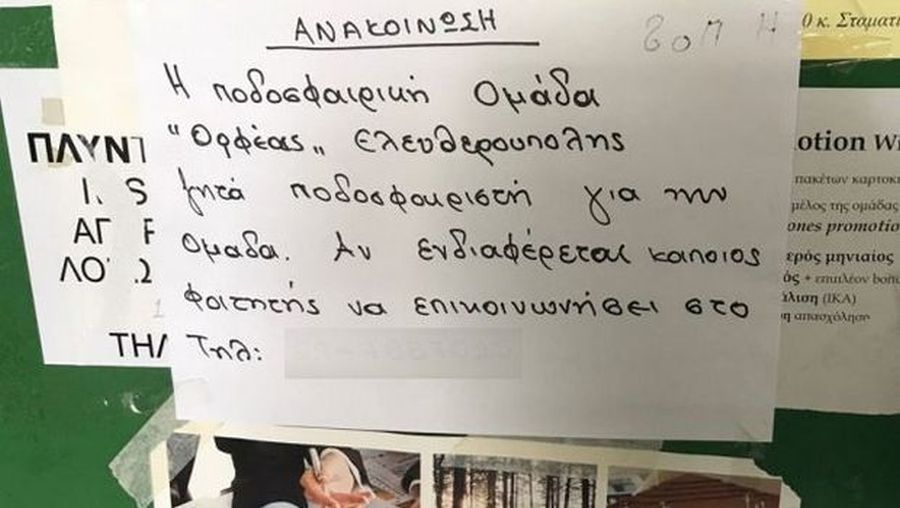 ΑΝΑΚΟΙΝΩΣΗ
Η ποδοσφαιρική Ομάδα
"Ορφέας„ Ελευθερουπολης
ζητά ποδοσφαιριστή για την
ομαδα. Αν ενδιαφέρεται καποιος
φοιτητής να επικοινωνήσει στο
Τηλ:
0 κ. Σταματι
ΠΛΥΝΤ
Ι. S
ΑΓ
ΛΟ .2
ΤΗΛ
otion Wi
πακέτων καρτοκι
μέλος της ομάδας
ones promotio
ερός μηνιαίος
ός + επιπλέον bonu
άλιση (ΙΚΑ)
η απασχόληση